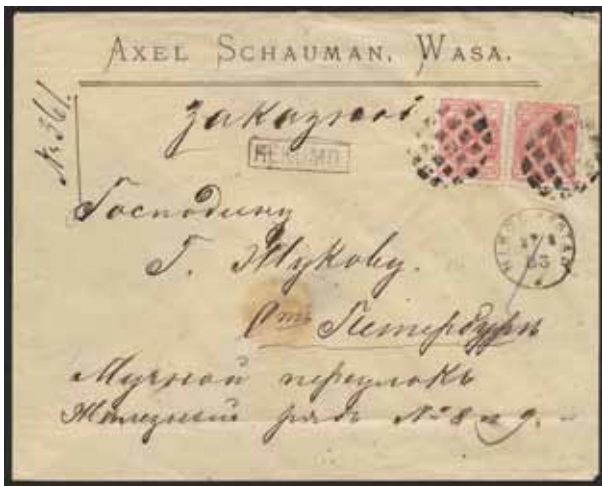 AXEL SCHAUMAN, WASA.
№ 361.
Заказное
REKOMD
Господину
Г. Жукову.
Ст Петербургъ
Мучной переулокъ
Железный рядъ № 8 и 9.
83